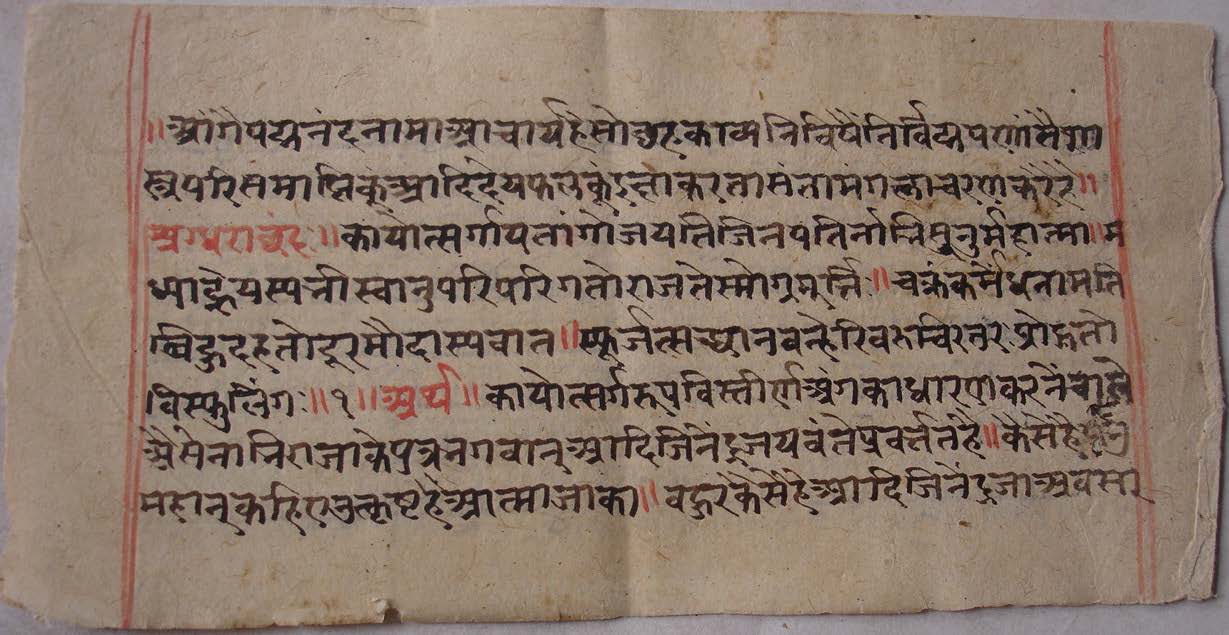 ॥ आगैं पद्मनंद नामा आचार्य है सो
स्त्रपरिसमाप्तिकूं आदि देय फलकूं करता संता मंगलाचरण करै है ॥
स्रग्धराछंद ॥ कायोत्सर्गायतांगो जयति जिनपतिर्नाभिसूनुर्महात्मा ॥ म
ध्याह्ने यस्य भास्वानुपरिपरिगतो राजतेस्मोग्रमूर्त्तिः ॥ चक्रं कर्मेंधनानामति
दहतो दूरमौदास्यवात ॥ स्फूर्जत्सद्ध्यानवन्हेरिव रुचिरतर प्रोद्गतो
विस्फुलिंगः ॥ १ ॥ अर्थ ॥ कायोत्सर्गरूप विस्तीर्ण अंग का धारण करनें वाले
अैसे नाभिराजा के पुत्र भगवान् आदिजिनेंद्र जयवंते प्रवर्त्तत है ॥ कैसे है
महान् कहिए उत्कृष्ट है आत्मा जाका ॥ बहुरि कैसे है आदिजिनेंद्र जा अवसा